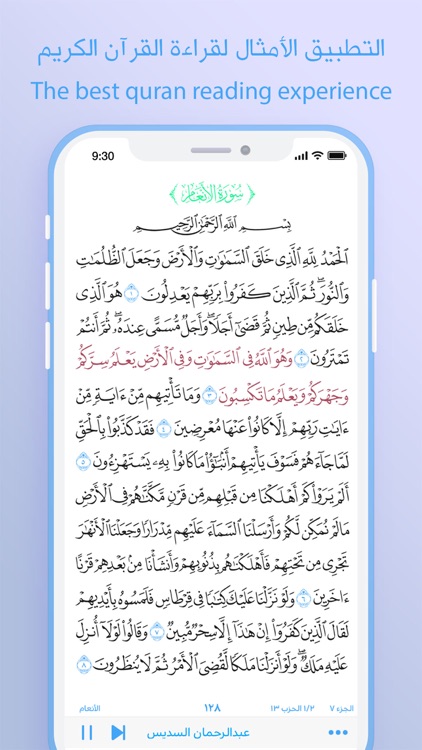 التطبيق الأمثال لقراءة القرآن الكريم
The best quran reading experience
9:30
سُورَةُ الأَنْعَامِ
بِسْمِ ٱللَّهِ ٱلرَّحْمَٰنِ ٱلرَّحِيمِ
ٱلْحَمْدُ لِلَّهِ ٱلَّذِى خَلَقَ ٱلسَّمَٰوَٰتِ وَٱلْأَرْضَ وَجَعَلَ ٱلظُّلُمَٰتِ
وَٱلنُّورَ ۖ ثُمَّ ٱلَّذِينَ كَفَرُوا۟ بِرَبِّهِمْ يَعْدِلُونَ ١ هُوَ ٱلَّذِى
خَلَقَكُم مِّن طِينٍ ثُمَّ قَضَىٰٓ أَجَلًا ۖ وَأَجَلٌ مُّسَمًّى عِندَهُۥ ۖ ثُمَّ أَنتُمْ
تَمْتَرُونَ ٢ وَهُوَ ٱللَّهُ فِى ٱلسَّمَٰوَٰتِ وَفِى ٱلْأَرْضِ يَعْلَمُ سِرَّكُمْ
وَجَهْرَكُمْ وَيَعْلَمُ مَا تَكْسِبُونَ ٣ وَمَا تَأْتِيهِم مِّنْ ءَايَةٍ مِّنْ
ءَايَٰتِ رَبِّهِمْ إِلَّا كَانُوا۟ عَنْهَا مُعْرِضِينَ ٤ فَقَدْ كَذَّبُوا۟ بِٱلْحَقِّ
لَمَّا جَآءَهُمْ فَسَوْفَ يَأْتِيهِمْ أَنۢبَٰٓؤُا۟ مَا كَانُوا۟ بِهِۦ يَسْتَهْزِءُونَ ٥
أَلَمْ يَرَوْا۟ كَمْ أَهْلَكْنَا مِن قَبْلِهِم مِّن قَرْنٍ مَّكَّنَّٰهُمْ فِى ٱلْأَرْضِ
مَا لَمْ نُمَكِّن لَّكُمْ وَأَرْسَلْنَا ٱلسَّمَآءَ عَلَيْهِم مِّدْرَارًا وَجَعَلْنَا ٱلْأَنْهَٰرَ
تَجْرِى مِن تَحْتِهِمْ فَأَهْلَكْنَٰهُم بِذُنُوبِهِمْ وَأَنشَأْنَا مِنۢ بَعْدِهِمْ قَرْنًا
ءَاخَرِينَ ٦ وَلَوْ نَزَّلْنَا عَلَيْكَ كِتَٰبًا فِى قِرْطَاسٍ فَلَمَسُوهُ بِأَيْدِيهِمْ
لَقَالَ ٱلَّذِينَ كَفَرُوٓا۟ إِنْ هَٰذَآ إِلَّا سِحْرٌ مُّبِينٌ ٧ وَقَالُوا۟ لَوْلَآ أُنزِلَ
عَلَيْهِ مَلَكٌ ۖ وَلَوْ أَنزَلْنَا مَلَكًا لَّقُضِىَ ٱلْأَمْرُ ثُمَّ لَا يُنظَرُونَ ٨
الجزء ٧ ١/٢ الحزب ١٣ ١٢٨ الأنعام
عبدالرحمان السديس